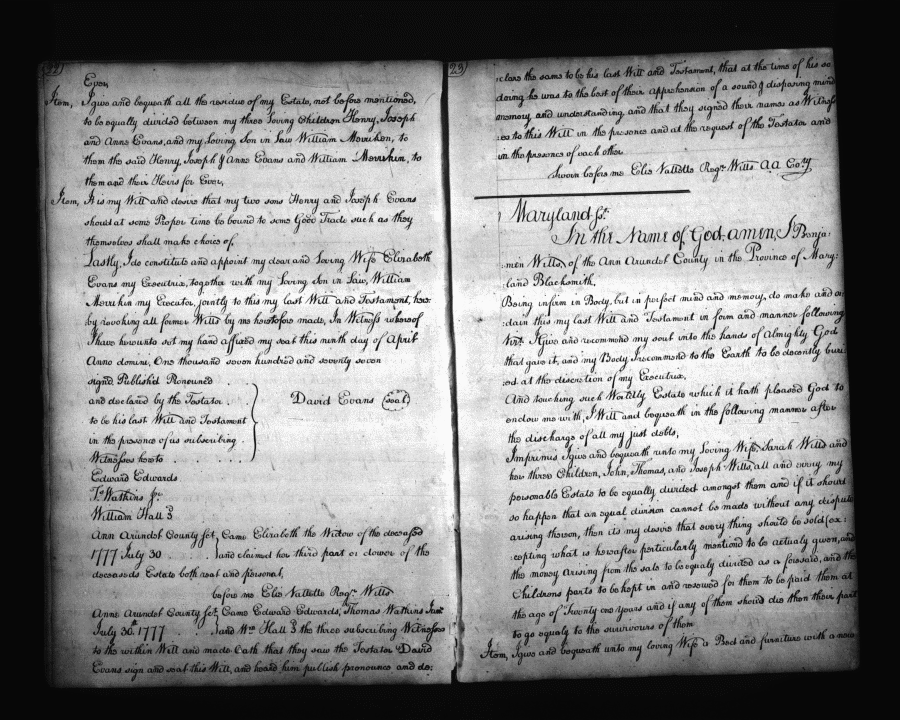 22
Ever,
Item, I give and bequeath all the residue of my Estate, not before mentioned,
to be equally divided between my three loving Children Henry, Joseph
and Anne Evans, and my loving Son in Law William Merriken, to
them the said Henry, Joseph & Anne Evans and William Merrikin, to
them and their Heirs for Ever,
Item, It is my Will and desire that my two sons Henry and Joseph Evans
should at some Proper time be bound to some Good Trade such as they
themselves shall make choice of,
Lastly, I do constitute and appoint my dear and loving Wife Elizabeth
Evans my Executrix, together with my loving Son in Law, William
Merrikin my Executor, jointly to this my last Will and Testament, here:
:by revoking all former Wills by me heretofore made, In Witness whereof
I have hereunto set my hand affixed my seal this ninth day of April
Anno domini, One thousand seven hundred and seventy seven
signed Publish'd Pronounced . .
and declared by the Testator . . .
David Evans (seal)
to be his last Will and Testament
in the presence of us subscribing .
Witnesses hereto . . . . . .
Edward Edwards
Ts. Watkins Jr.
William Hall 3d
Ann Arundel County sct, Came Elizabeth the Widow of the deceased
1777 July 30 . . . . . and claimed her third part or dower of the
deceaseds Estate both real and personal,
before me Elie Vallette Regr. Wills
Anne Arundel County sct: Came Edward Edwards, Thomas Watkins Junr.
July 30th. 1777 . . . and Wm. Hall 3d the three subscribing Witnesses
to the within Will and made Oath that they saw the Testator David
Evans sign and seal this Will, and heard him publish pronounce and de:
23
:clare the same to be his last Will and Testament, that at the time of his so
doing he was to the best of their apprehension of a sound & disposing mind
memory, and understanding, and that they signed their names as Witness
:es to this Will in the presence and at the request of the Testator and
in the presence of each other
Sworn before me Elie Vallette Regr. Wills AA Coty
Maryland sct.
In the Name of God, amen, I Benja:
:min Wills, of the Ann Arundel County in the Province of Mary:
:land Blacksmith,
Being infirm in Body, but in perfect mind and memory, do make and or:
:dain this my last Will and Testament in form and manner following
first I give and recommend my soul into the hands of Almighty God
that gave it, and my Body I recommend to the Earth to be decently buri:
:ed at the discretion of my Executrix,
And touching such Worldly Estate which it hath pleased God to
endow me with, I Will and bequeath in the following manner after
the discharge of all my just debts,
Imprimis I give and bequeath unto my loving Wife, Sarah Wills and
her three Children, John, Thomas, and Joseph Wills, all and every my
personable Estate to be equally divided amongst them and if it should
so happen that an equal division cannot be made without any dispute
arising thereon, then its my desire that every thing should be sold (ex:
:cepting what is hereafter particularly mentiond to be actualy given, and
the money arising from the sale to be equaly divided as a foresaid, and the
Childrens parts to be kept in and reserved for them to be paid them at
the age of Twenty one Years and if any of them should die then their part
to go equaly to the survivours of them
Item, I give and bequeath unto my loving Wife a Bed and furniture with a